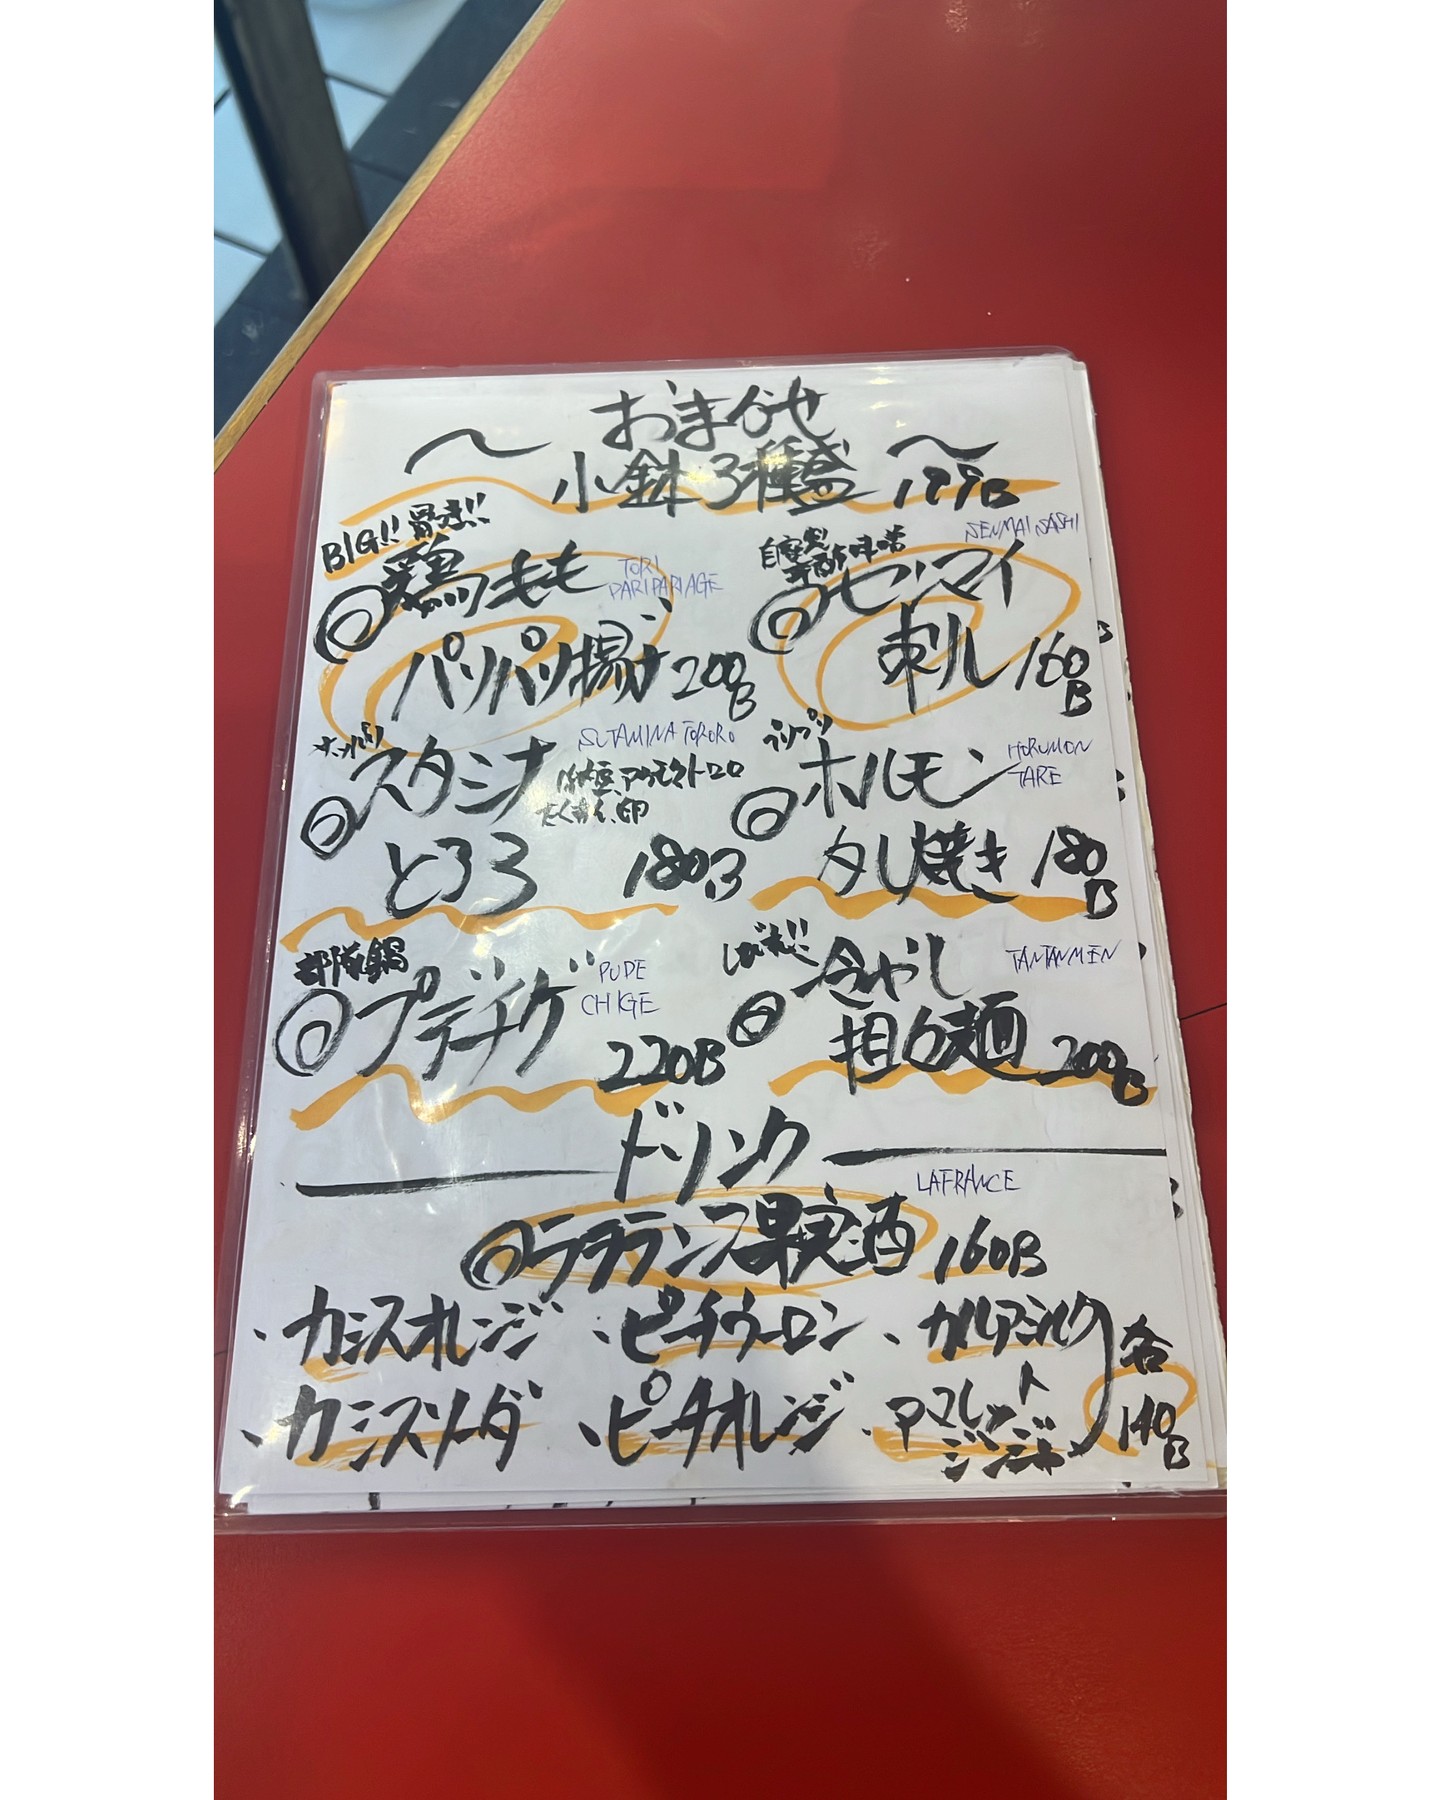 おまかせ
小鉢3種盛 199B
BIG!! 骨付き!!
◎鶏もも TORI PARIPARI AGE
パリパリ揚げ 200B
自家製 酢味噌 SENMAI SASHI
◎センマイ
刺し 160B
ネバネバ
◎スタミナ SUTAMINA TORORO
納豆、オクラ、トロロ
たくあん、卵
とろろ 180B
プリプリ
◎ホルモン HORUMON TARE
タレ焼き 180B
部隊鍋
◎プデチゲ PUDE CHIGE
220B
しびれ!! TANTANMEN
◎冷やし
担々麺 200B
ドリンク
LAFRANCE
◎ラフランス果実酒 160B
・カシスオレンジ ・ピーチウーロン ・カルアミルク
・カシスソーダ ・ピーチオレンジ ・アマレットジンジャー
各140B